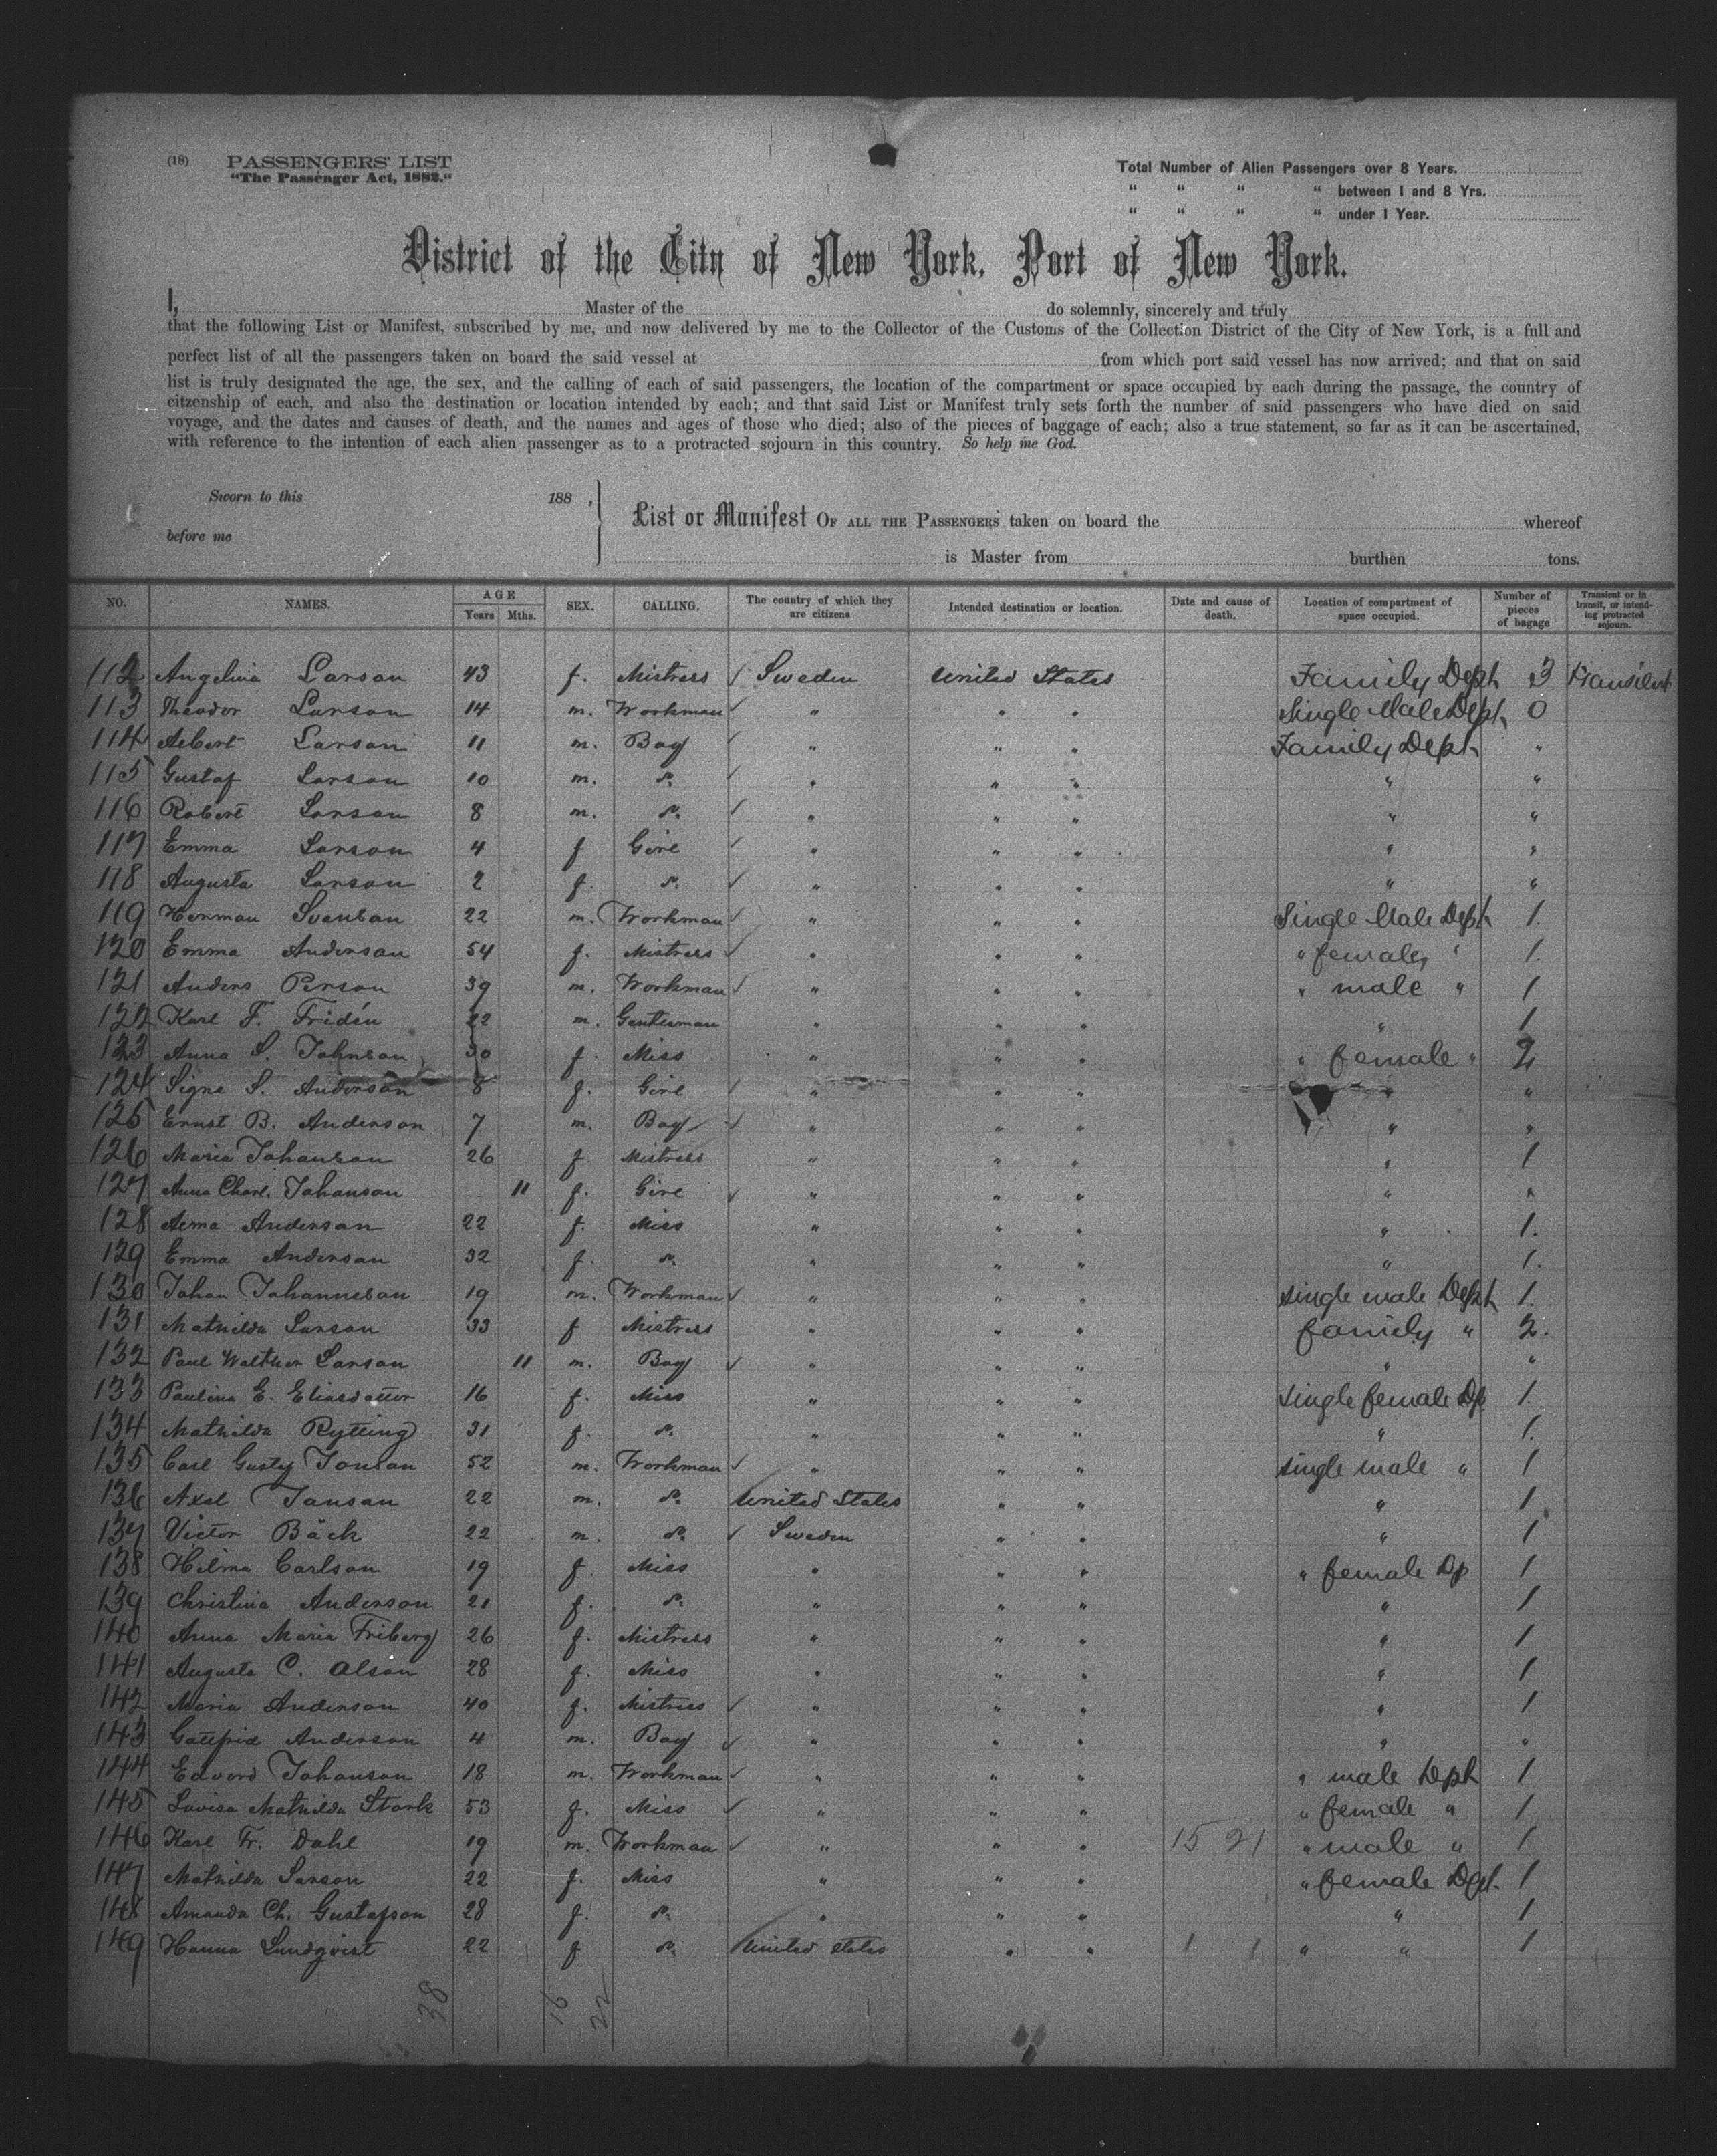 (18) PASSENGERS' LIST
"The Passenger Act, 1882."
Total Number of Alien Passengers over 8 Years.
" " " " between 1 and 8 Yrs.
" " " " under 1 Year.
District of the City of New York, Port of New York.
I, Master of the do solemnly, sincerely and truly
that the following List or Manifest, subscribed by me, and now delivered by me to the Collector of the Customs of the Collection District of the City of New York, is a full and
perfect list of all the passengers taken on board the said vessel at from which port said vessel has now arrived; and that on said
list is truly designated the age, the sex, and the calling of each of said passengers, the location of the compartment or space occupied by each during the passage, the country of
citzenship of each, and also the destination or location intended by each; and that said List or Manifest truly sets forth the number of said passengers who have died on said
voyage, and the dates and causes of death, and the names and ages of those who died; also of the pieces of baggage of each; also a true statement, so far as it can be ascertained,
with reference to the intention of each alien passenger as to a protracted sojourn in this country. So help me God.
Sworn to this 188 ,
before me
List or Manifest OF ALL THE PASSENGERS taken on board the whereof
is Master from burthen tons.
NO. NAMES. AGE Years Mths. SEX. CALLING. The country of which they are citizens Intended destination or location. Date and cause of death. Location of compartment of space occupied. Number of pieces of bagage Transient or in transit, or intending protracted sojourn.
112 Angelina Larson 43 f. Mistress Sweden United States Family Dept 3 Transient
113 Theodor Larson 14 m. Workman " " " Single Male Dept 0
114 Albert Larson 11 m. Boy " " " Family Dept "
115 Gustaf Larson 10 m. do. " " " " "
116 Robert Larson 8 m. do. " " " " "
117 Emma Larson 4 f Girl " " " " "
118 Augusta Larson 2 f. do. " " " " "
119 Herman Svenson 22 m. Workman " " " Single Male Dept 1.
120 Emma Anderson 54 f. Mistress " " " " female " 1.
121 Anders Person 39 m. Workman " " " " male " 1
122 Karl F. Fridén 22 m. Gentleman " " " " 1
123 Anna S. Johnson 30 f. Miss " " " " female " 2
124 Signe S. Anderson 8 f. Girl " " " " "
125 Ernst B. Anderson 7 m. Boy " " " " "
126 Maria Johanson 26 f Mistress " " " " 1
127 Anna Charl. Johanson 11 f. Girl " " " " "
128 Alma Anderson 22 f. Miss " " " " 1.
129 Emma Anderson 32 f. do. " " " " 1.
130 Johan Johanneson 19 m. Workman " " " single male Dept 1.
131 Mathilda Larson 33 f Mistress " " " family " 2.
132 Paul Walther Larson 11 m. Boy " " " " "
133 Paulina E. Eliasdotter 16 f. Miss " " " single female Dp 1.
134 Mathilda Rytting 31 f. do. " " " " 1.
135 Carl Gustaf Jonson 52 m. Workman " " " single male " 1
136 Axel Janson 22 m. do. United States " " " 1
137 Victor Bäck 22 m. do. Sweden " " " 1
138 Hilma Carlson 19 f. Miss " " " " female Dp 1
139 Christina Anderson 21 f. do. " " " " 1
140 Anna Maria Friberg 26 f. Mistress " " " " 1
141 Augusta C. Olson 28 f. Miss " " " " 1
142 Maria Anderson 40 f. Mistress " " " " 1
143 Gottfrid Anderson 4 m. Boy " " " " "
144 Edvard Johanson 18 m. Workman " " " " male Dept 1
145 Lovisa Mathilda Stark 53 f. Miss " " " " female " 1
146 Karl Fr. Dahl 19 m. Workman " " " 15 21 " male " 1
147 Mathilda Larson 22 f. Miss " " " " female Dept. 1
148 Amanda Ch. Gustafson 28 f. do. " " " " 1
149 Hanna Lundqvist 22 f do. United States " " 1 1 " " 1
38 16 22